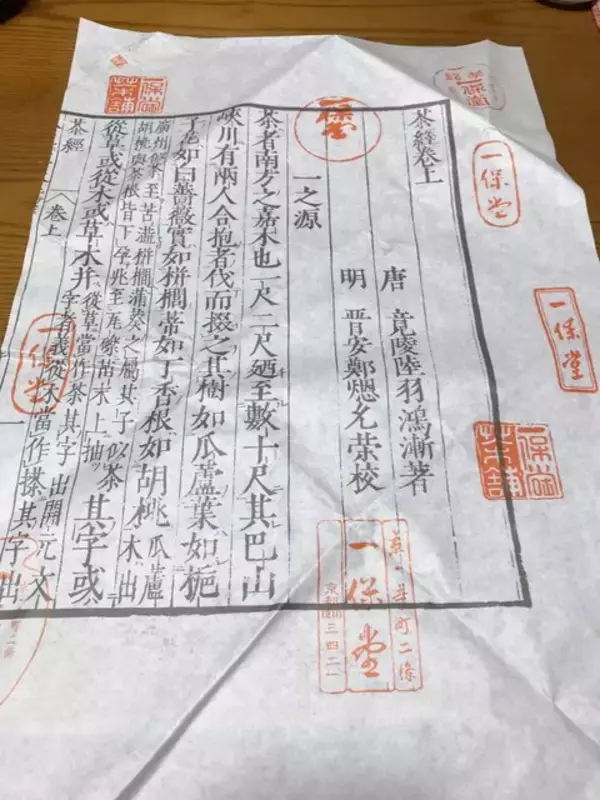 茶經卷上
唐 竟陵陸羽鴻漸著
明 晋安鄭熜允荣校
一之源
茶者南方之嘉木也一尺二尺廼至數十尺其巴山
峽川有兩人合抱者伐而掇之其樹如瓜蘆葉如梔
子花如白薔薇實如栟櫚蒂如丁香根如胡桃 瓜蘆木出
廣州似茶至苦澁栟櫚蒲葵之屬其子似茶
胡桃與茶根皆下孕兆至瓦礫苗木上抽 其字或
從草或從木或草木并 從草當作茶其字出開元文
字者義從木當作搽其字出
茶經 卷上 一
一保堂
一保堂
一保堂
一保堂茶舗
一保堂茶舗
寺町二條
一保堂
三四二一
一保堂